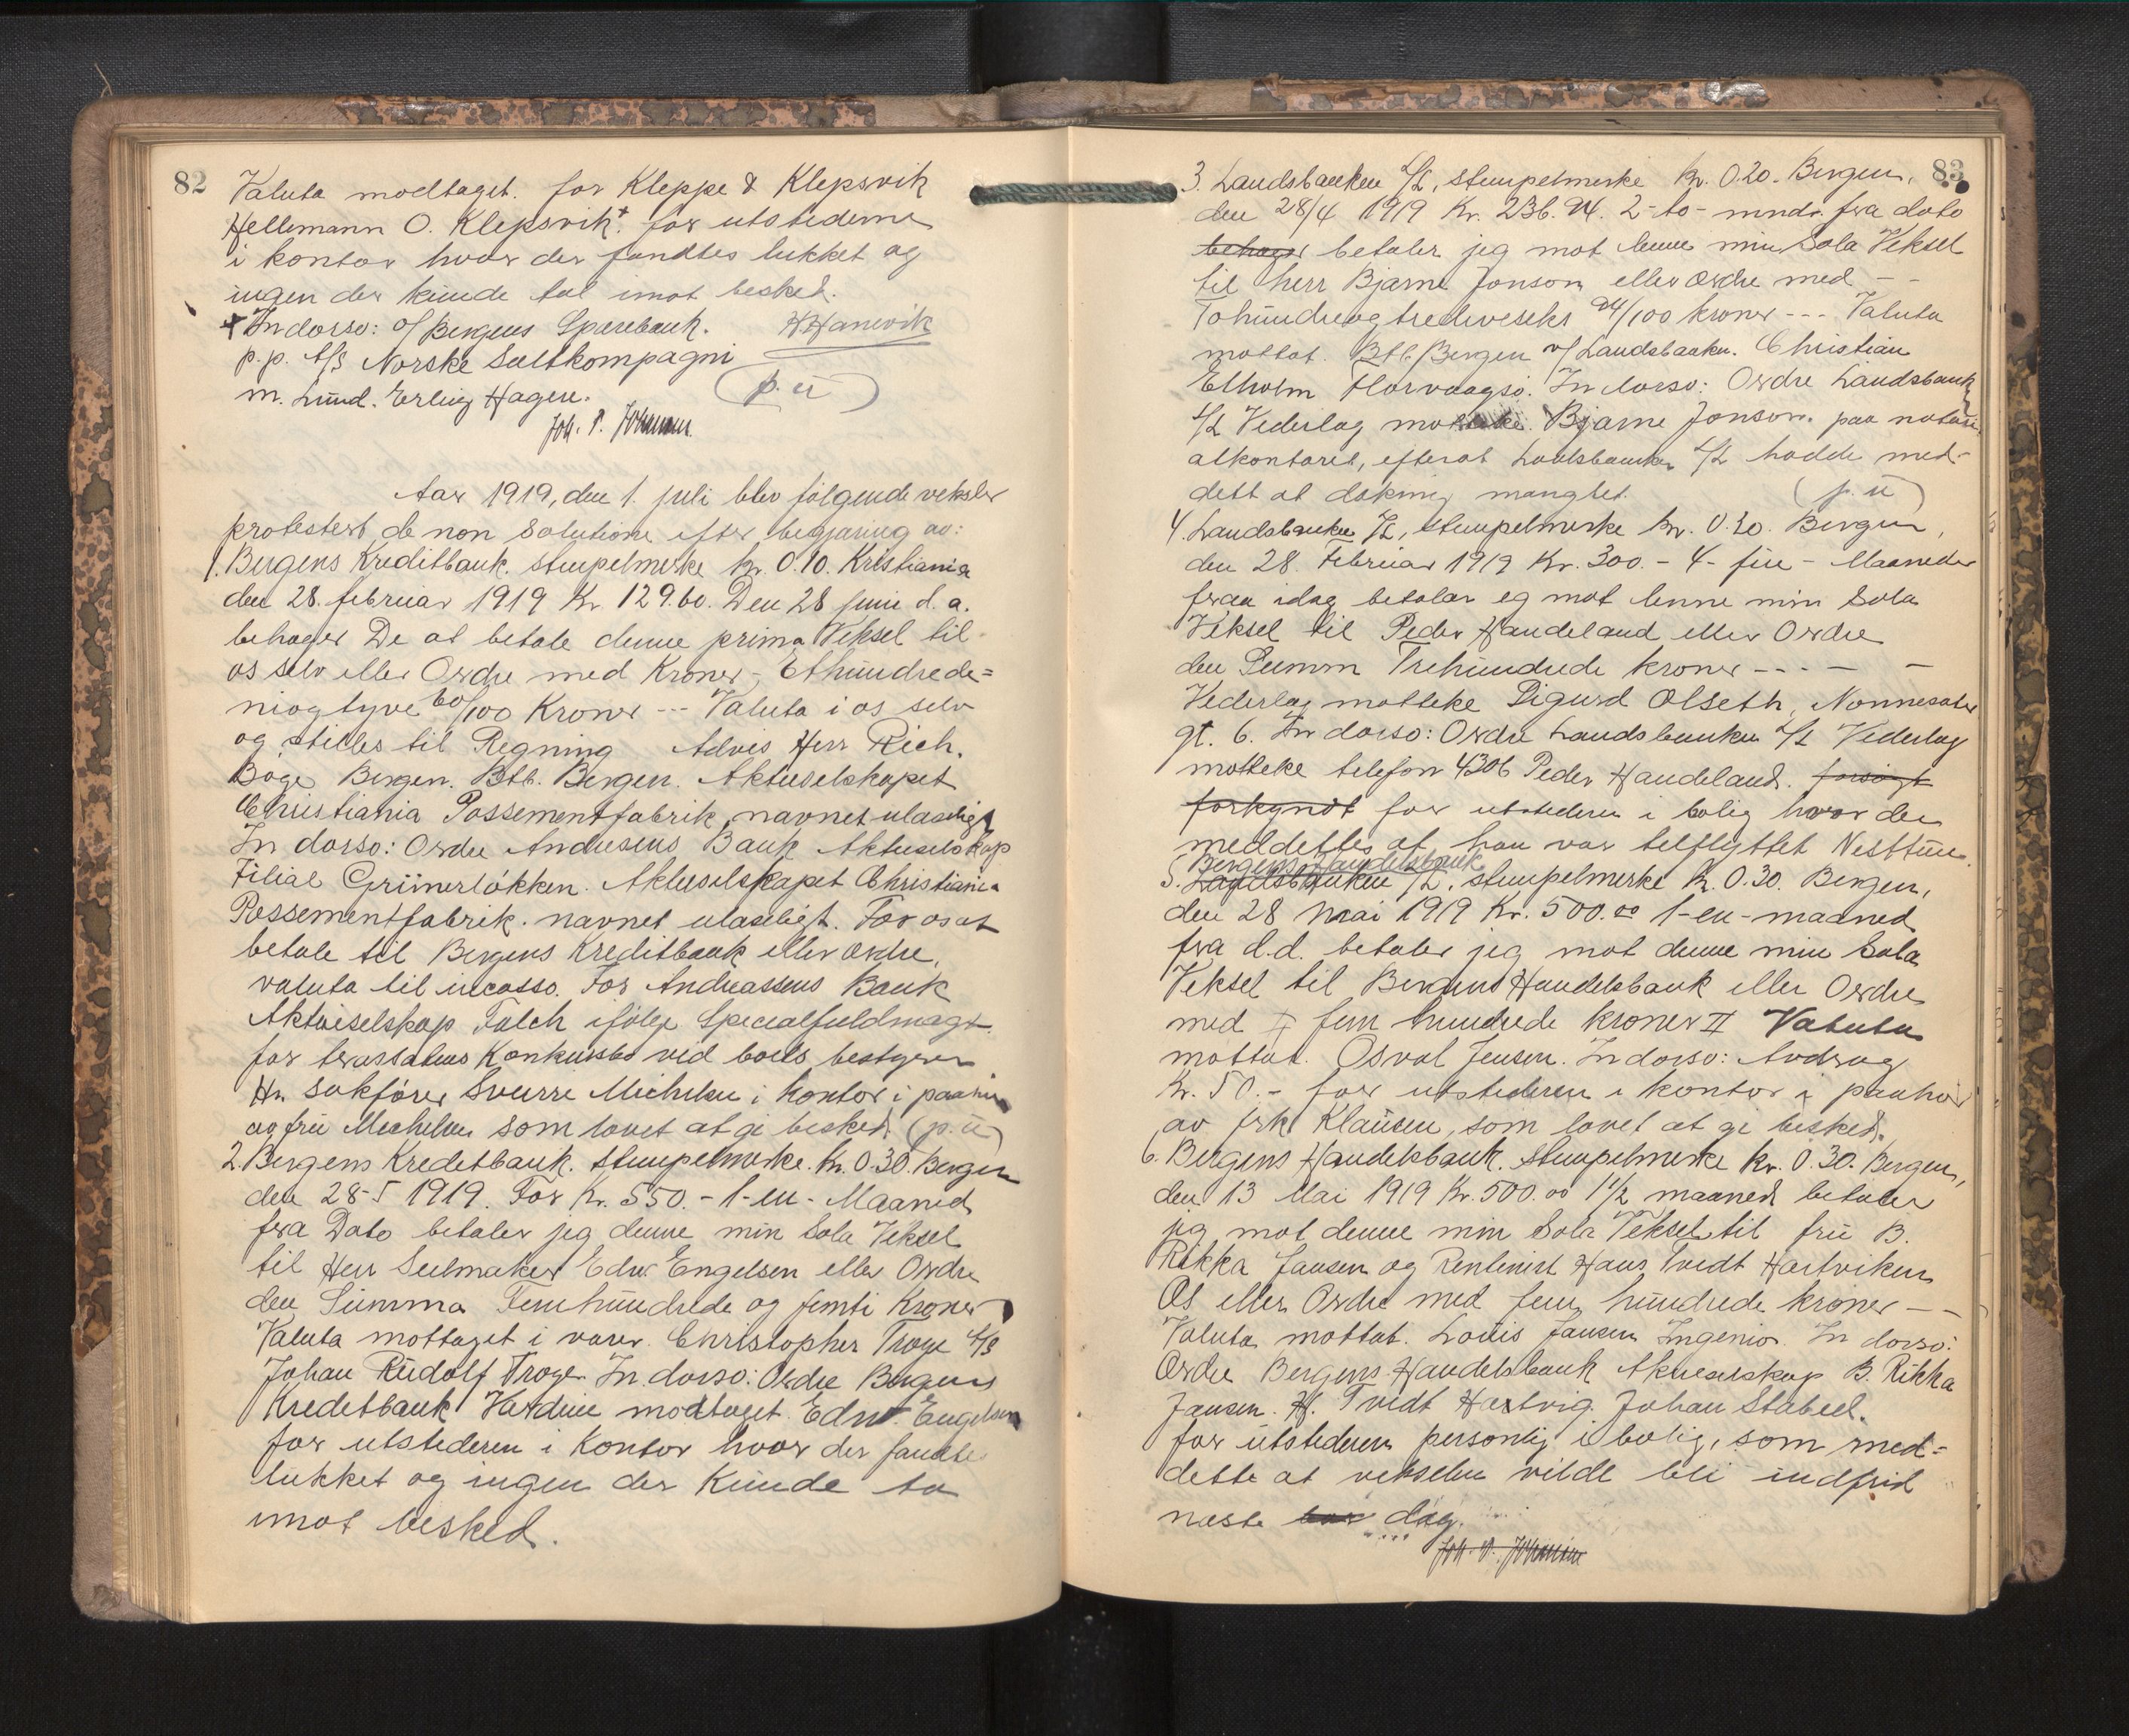 82
Valuta modtaget. for Kleppe & Klepsvik
Hellemann O. Klepsvik + for utstederne
i kontor hvor der fandtes lukket og
ingen der kunde tal imot besked.
+ In dorso: o/ Bergens Sparebank. H Hanevik
p.p. A/S Norske Saltkompagni
m. Lund. Erling Hagen. (p. u)
Joh. P. Johannes.
Aar 1919, den 1. juli blev følgende veksler
protestert de non solutione efter begjæring av:
1. Bergens Kreditbank. stempelmerke kr. 0.10. Kristiania
den 28. februar 1919 Kr. 129.60. Den 28 juni d. a.
behager De at betale denne prima Veksel til
os selv eller Ordre med Kroner - Ethundrede=
niogtyve 60/100 Kroner --- Valuta i os selv
og stilles til Regning Advis Herr Rich.
Böge Bergen. Btb. Bergen. Aktieselskapet
Christiania Possementfabrik navnet ulæselig
In dorso: Ordre Andresens Bank Aktieselskap
Filial Grünerløkken. Aktieselskapet Christiania
Possementfabrik. navnet ulæseligt. For os at
betale til Bergens Kreditbank eller ordre,
valuta til incasso. For Andreassens Bank
Aktieselskap Falch ifølge Specialfuldmagt.
for trassatens Konkursbo ved boets bestyrer
Hr. sakfører Sverre Michelsen i kontor i paahør
av frü Michelsen som lovet at gi besked. (p. u)
2. Bergens Kreditbank. Stempelmerke. Kr. 0.30. Bergen
den 28-5 1919. For Kr. 550.- 1-en- Maaned
fra Dato betaler jeg denne min Sola Veksel
til Herr Seilmaker Edw. Engelsen eller Ordre
den Summa Femhundrede og femti Kroner
Valuta mottaget i varer. Christopher Troye A/S
Johan Rudolf Troye In dorso: Ordre Bergens
Kreditbank Værdien modtaget. Edw. Engelsen
for utstederen i Kontor hvor der fandtes
lukket og ingen der Kunde ta
imot besked.
83
3. Landsbanken A/L, stempelmerke kr. 0.20. Bergen,
den 28/4 1919 Kr. 236.94. 2-to- mndr. fra dato
behager betaler jeg mot denne min Sola Veksel
til herr Bjarne Jonson eller ordre med - -
Tohundreogtredveseks 94/100 kroner --- Valuta
mottat. Btb. Bergen v/ Landsbanken. Christian
Elholm Florvaagsö. In dorso: Ordre Landsbanken
A/L Vederlag motteke. Bjarne Jonson. paa notari-
alkontoret, efterat Landsbanken A/L hadde med-
delt at dekning manglet. (p. u)
4. Landsbanken A/L, stempelmerke kr. 0.20. Bergen,
den 28. Februar 1919 Kr. 300.- 4- fire- Maaneder
fraa idag betalar eg mot denne min Sola
Veksel til Peder Handeland eller Ordre
den Summ Trehundrede kroner --- - -
Vederlag motteke Sigurd Olseth, Nonneseter
gt. 6. In dorso: Ordre Landsbanken A/L Vederlag
motteke telefon 4306 Peder Handeland. forsøgt
forkyndt for utstederen i bolig hvor der
meddeltes at han var tilflyttet Nesttun.
Bergens Handelsbank
5. Landsbanken A/L. stempelmerke kr. 0.30. Bergen,
den 28 Mai 1919 Kr. 500.00 1-en-maaned
fra d.d. betaler jeg mot denne min Sola
Veksel til Bergens Handelsbank eller Ordre
med fem hundrede kroner Valuta
mottat. Osval Jensen. In dorso: Avdrag
Kr. 50.- for utstederen i kontor i paahør
av frk Klausen, som lovet at gi besked.
6. Bergens Handelsbank. Stempelmerke kr. 0.30. Bergen,
den 13 Mai 1919 Kr. 500.00 1 1/2 maaned betaler
jeg mot denne min Sola Veksel til frü B.
Rikka Jansen og Rentenist Hans Tvedt Hartviken
Os eller Ordre med fem hundrede kroner - -
Valuta mottat. Louis Jansen Ingeniør. In dorso:
Ordre Bergens Handelsbank Aktieselskap B. Rikka
Jansen. H. Tvedt Hartvig. Johan Stabell.
for utstederen personlig i bolig, som med=
delte at vekselen vilde bli indfrid
næste dag.
Joh. P. Johannes